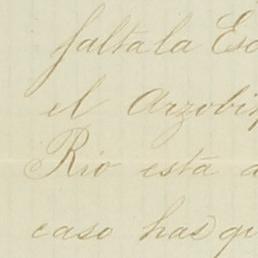 falta la Esc
el Arzobisp
Rio está a
caso has qu